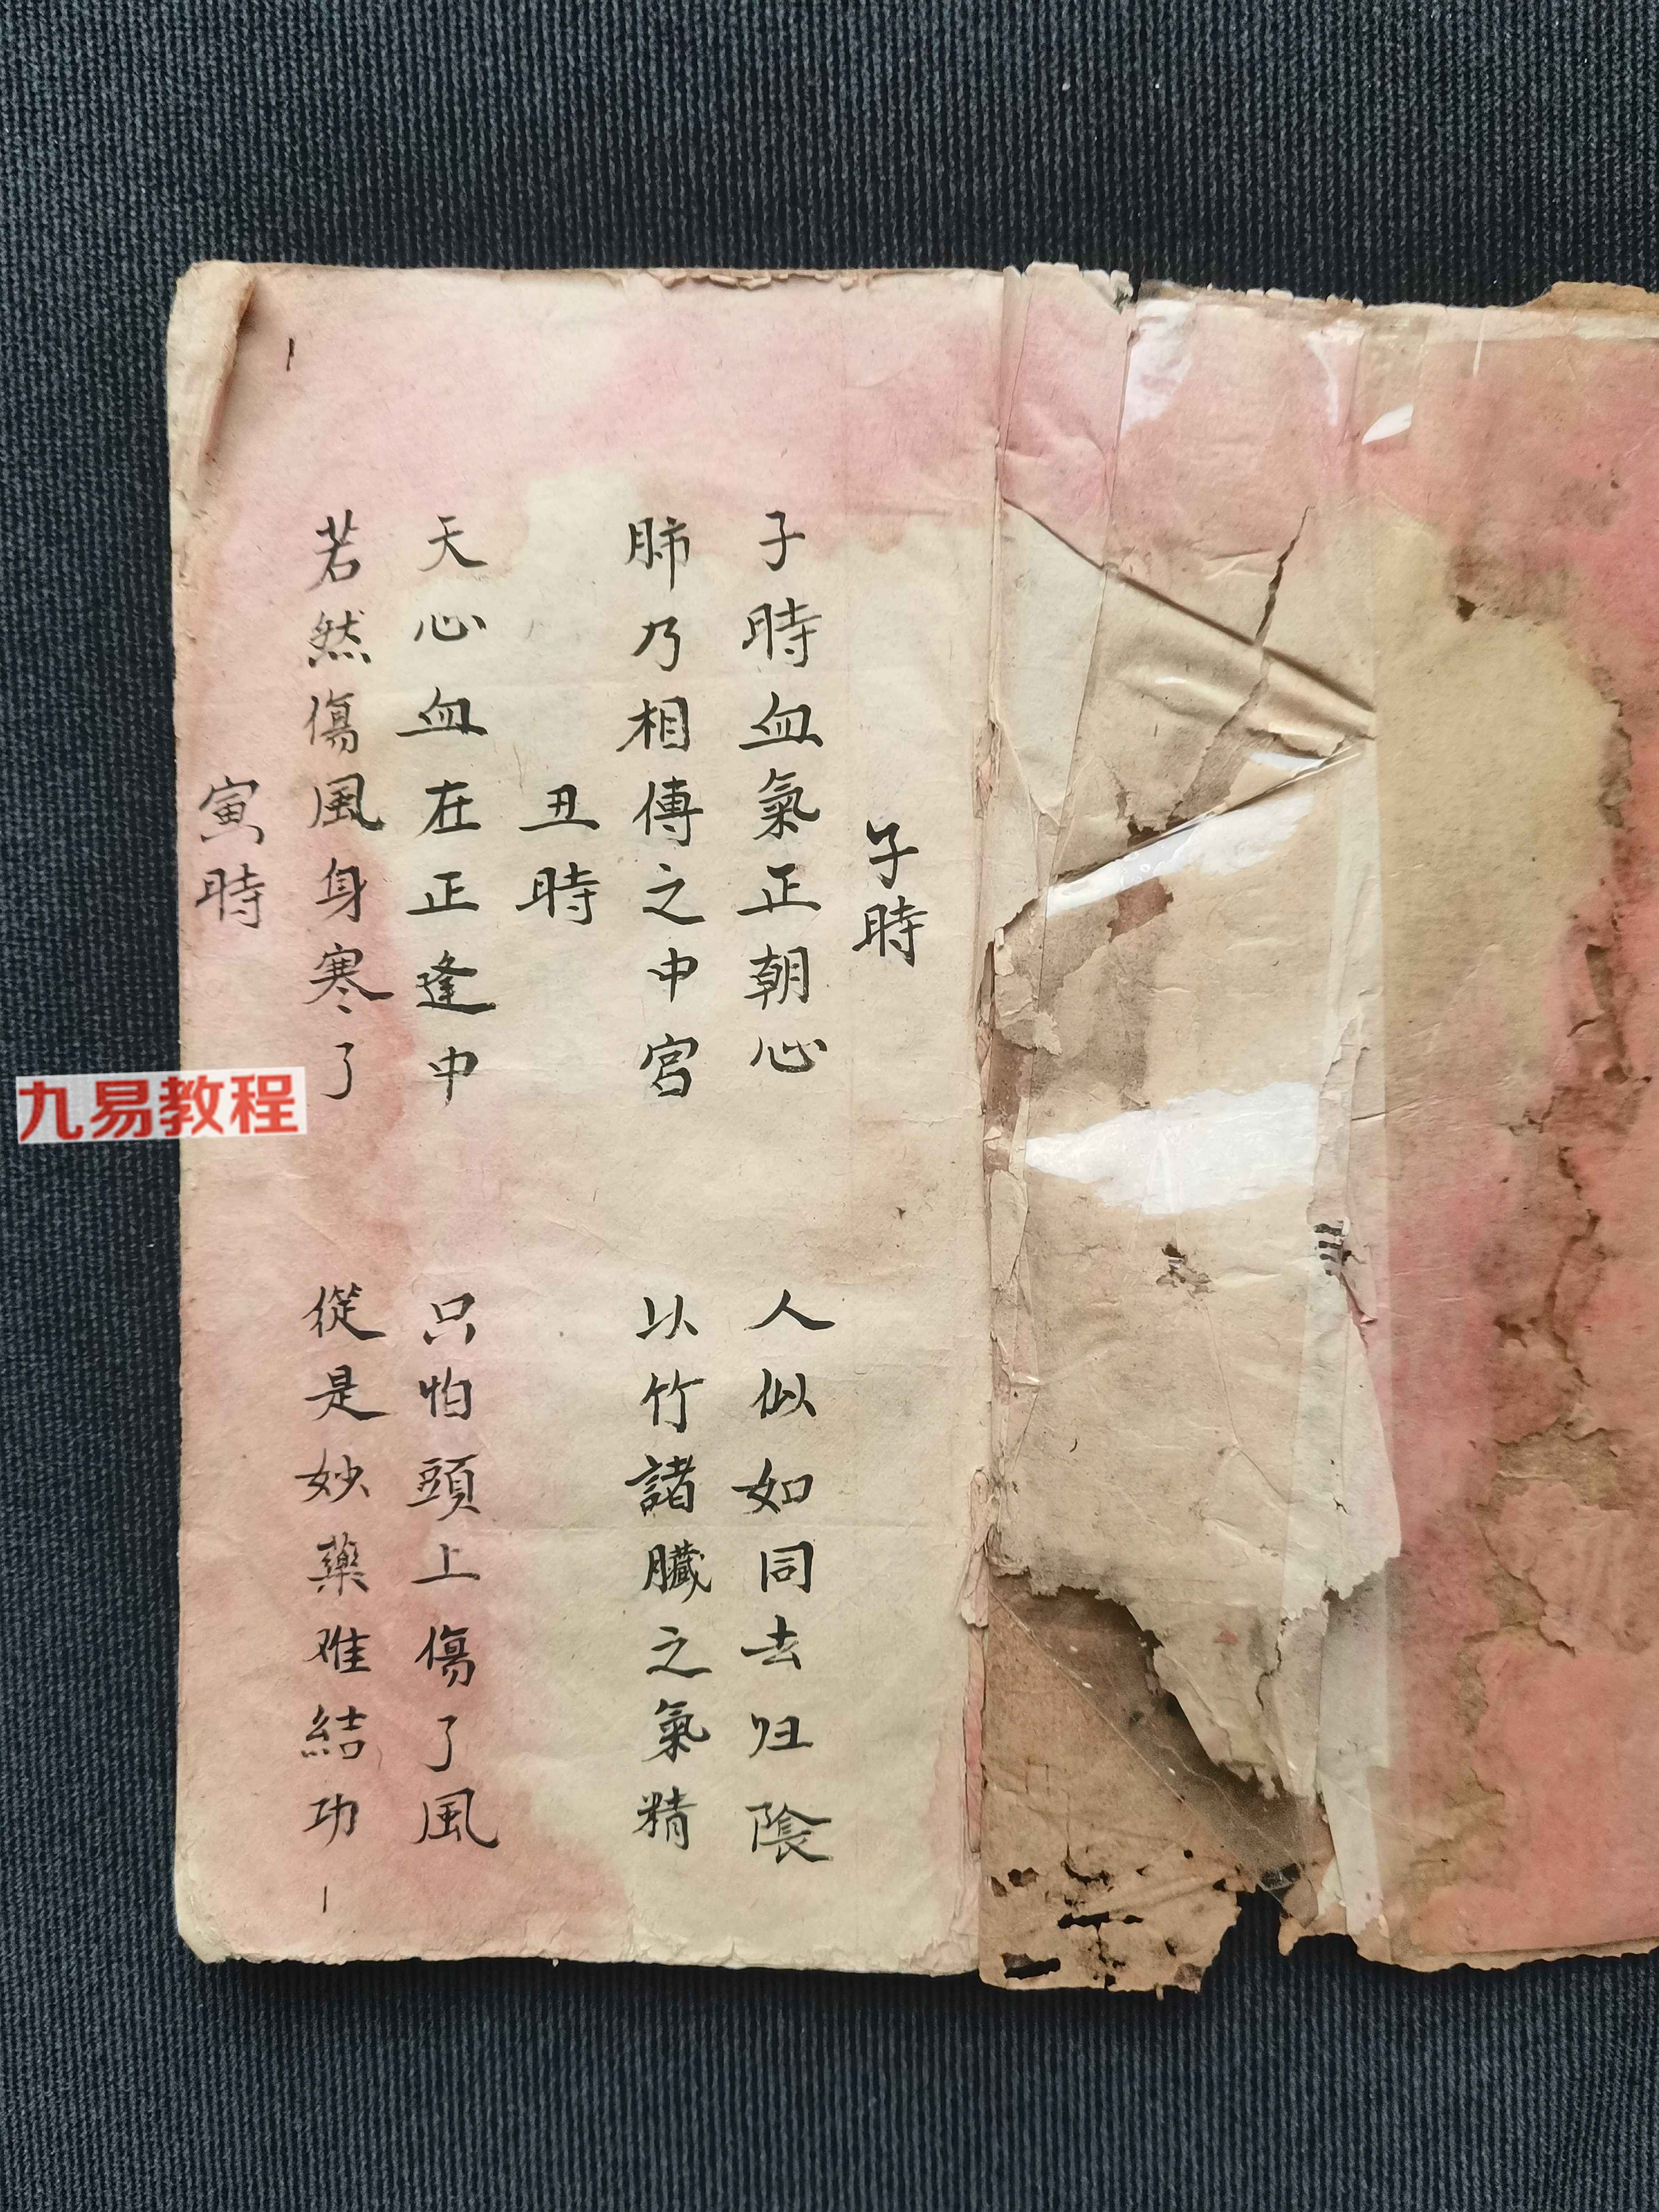 子時
子時血氣正朝心　人似如同去归陰
肺乃相傳之中宮　以竹諸臟之氣精
丑時
天心血在正逢中　只怕頭上傷了風
若然傷風身寒了　從是妙藥难結功
寅時
九易教程